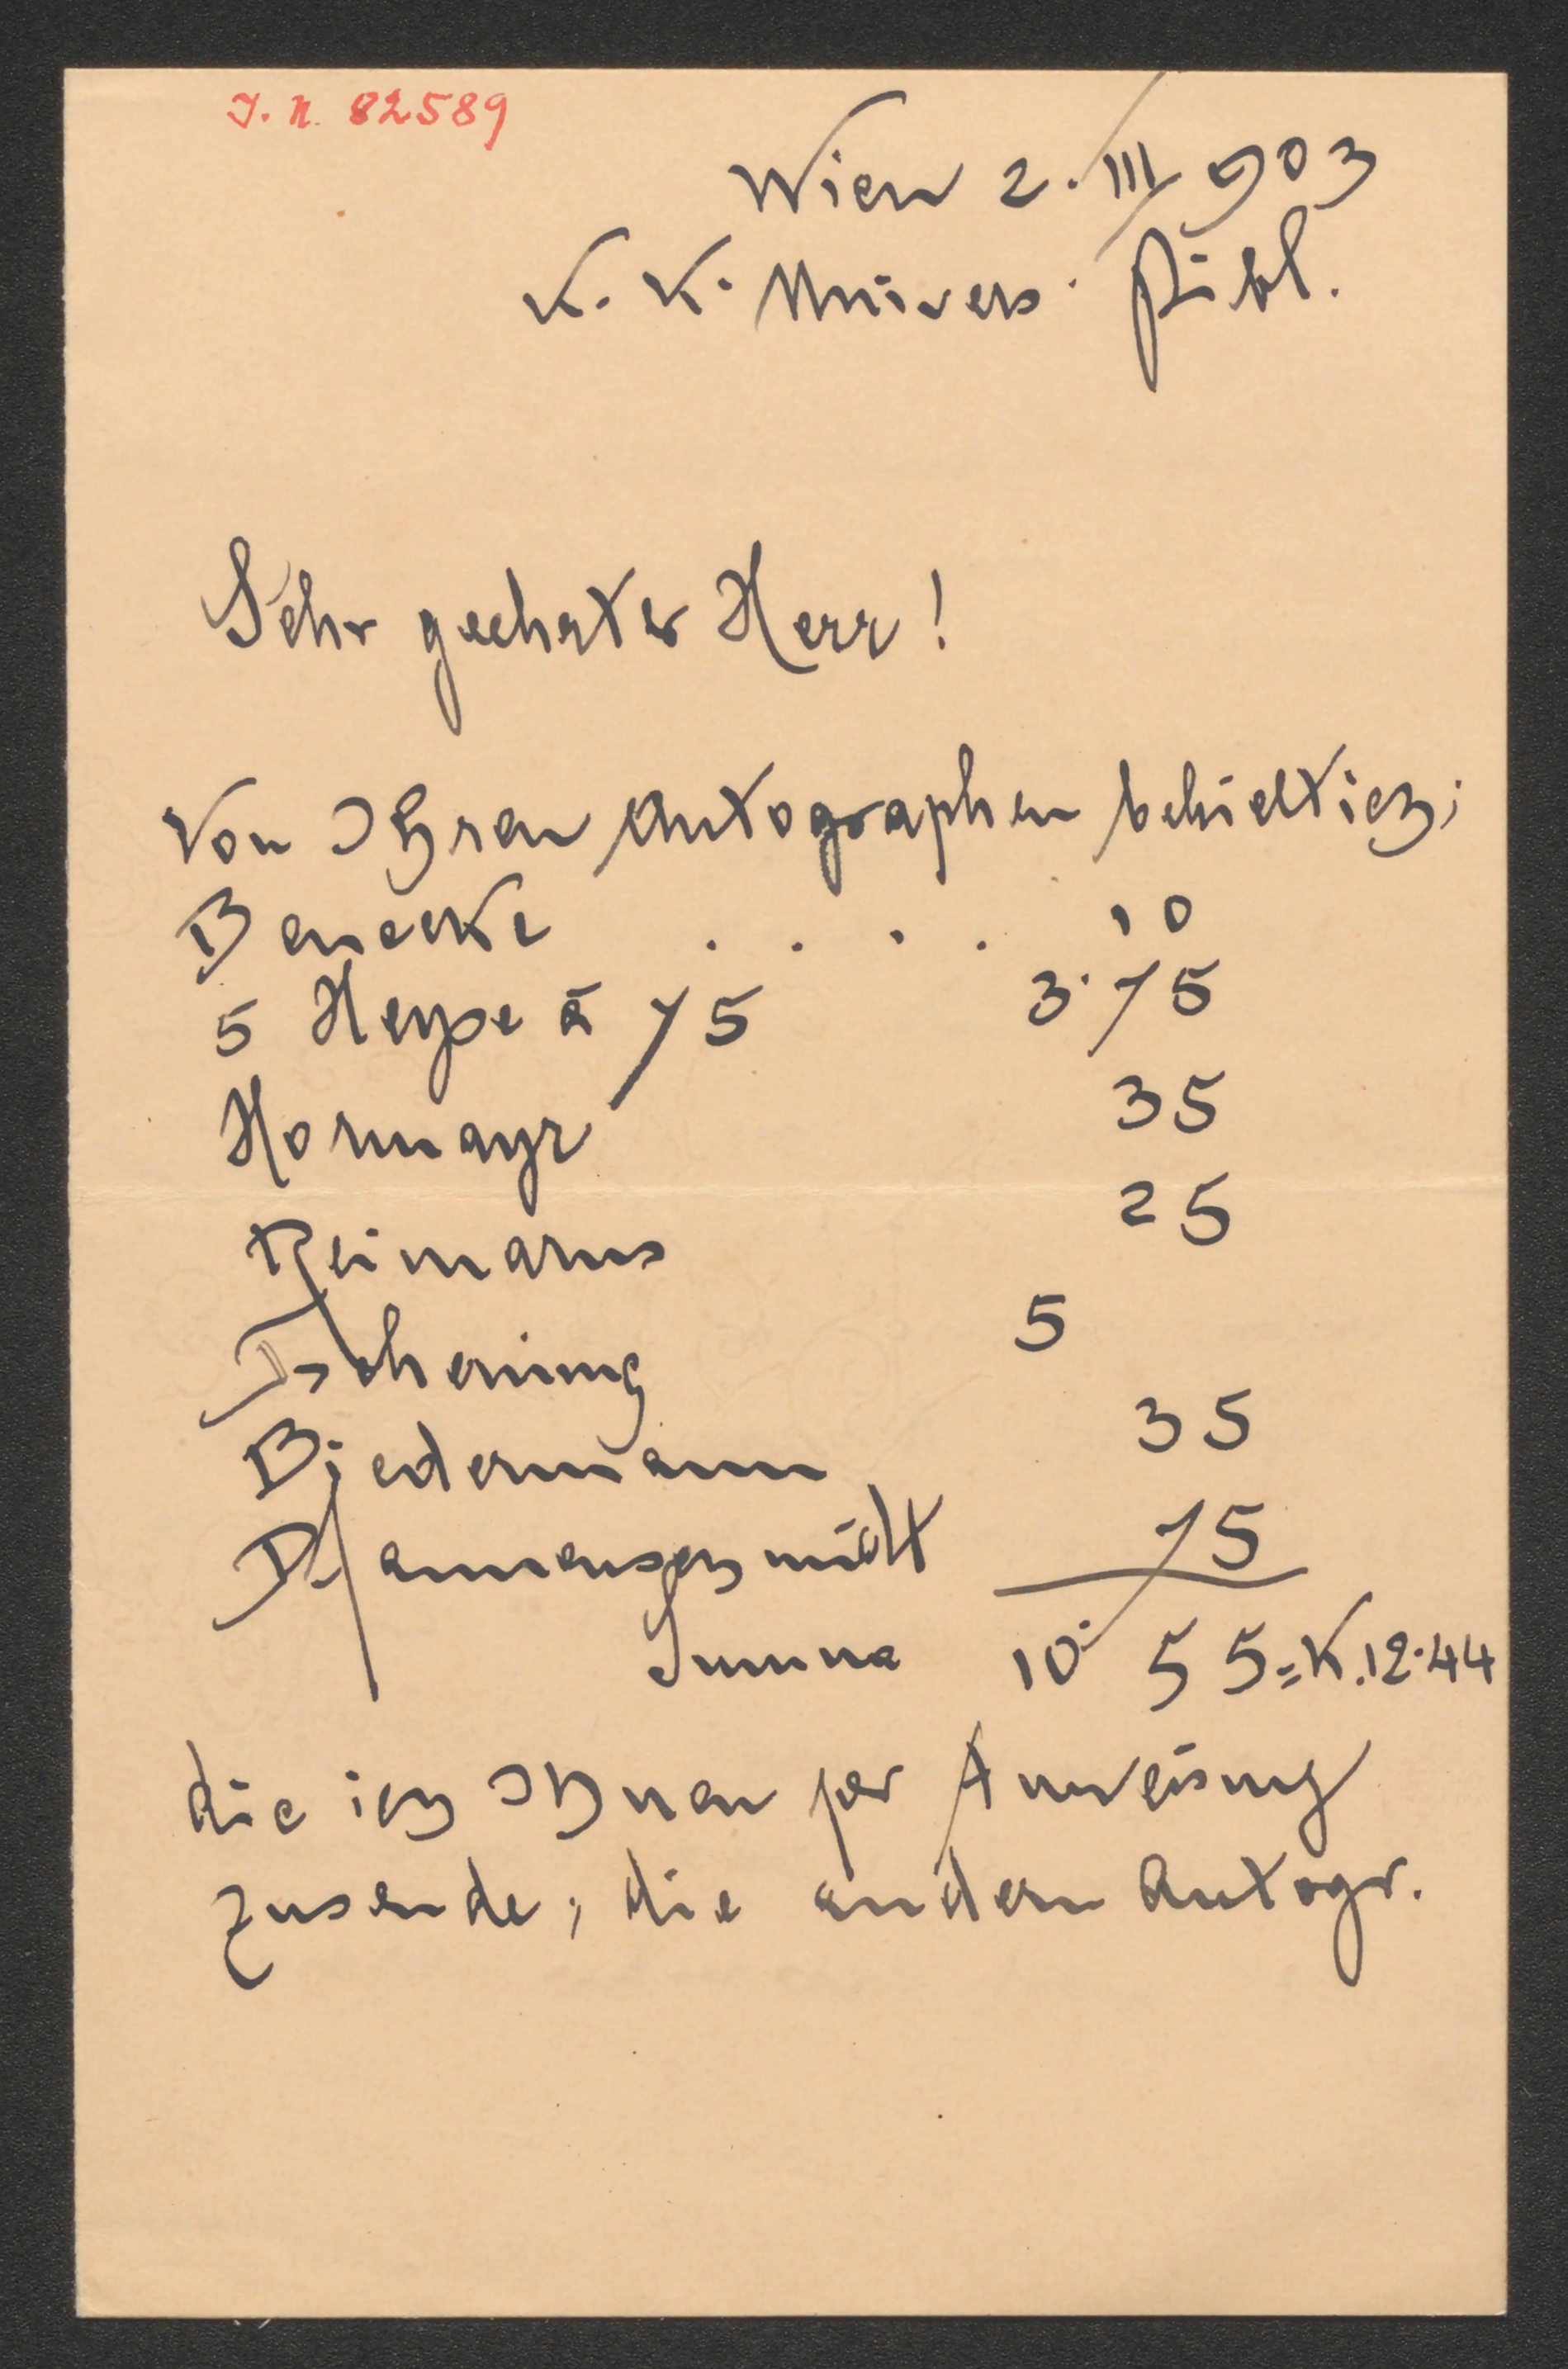 J. N. 82589
Wien 2. III 903
K. K. Univers. Bibl.
Sehr geehrter Herr!
Von Ihren Autographen behielt ich:
Benecke . . . . 10
5 Heyse à 75 3.75
Hormayr 35
Reimarus 25
Tscherning 5
Biedermann 35
Pfannenschmidt 75
Summa 10. 55=K.12.44
die ich Ihnen per Anweisung
zusende; die andern Autogr.